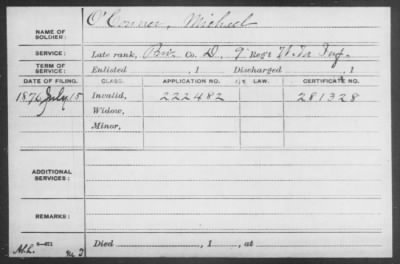 NAME OF SOLDIER: O'Connor, Michael
SERVICE: Late rank, Priv. Co. D, 9" Reg't
TERM OF SERVICE: Enlisted , 1 Discharged , 1
DATE OF FILING. CLASS. APPLICATION NO. LAW. CERTIFICATE NO.
1876 July 15 Invalid, 222482 281328
Widow,
Minor,
ADDITIONAL SERVICES:
REMARKS:
Died , 1 , at